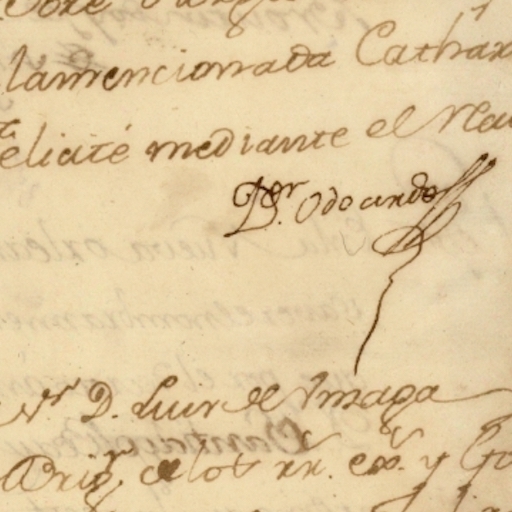 la mencionada Cathar
elicité mediante el
D.or Odoardo
S.r D. Luis de Vnzaga
Brig.r de los rr. ex.s y Go